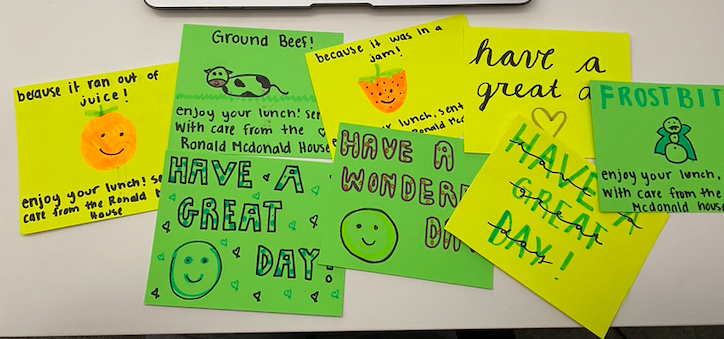 because it ran out of
juice!
enjoy your lunch!
care from the Ronald
House
Ground Beef!
enjoy your lunch!
With care from the
Ronald Mcdonald House
because it was in a
jam!
lunch, sent
Ronald
have a
great
FROSTBIT
enjoy your lunch,
With care from the
Mcdonald house
HAVE A
GREAT
DAY!
HAVE A
WONDERF
DA
HAVE A
GREAT
DAY!
have a
Great
Day